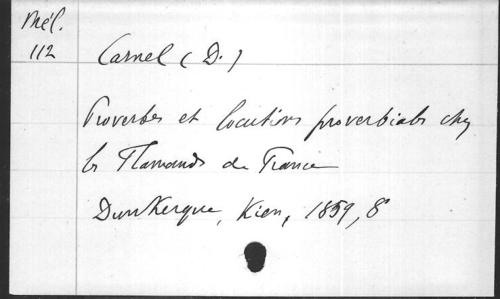 Mél.
112
Carnel (D.)
Proverbes et locutions proverbiales chez
les Flamands de France
Dunkerque, Kien, 1859, 8°